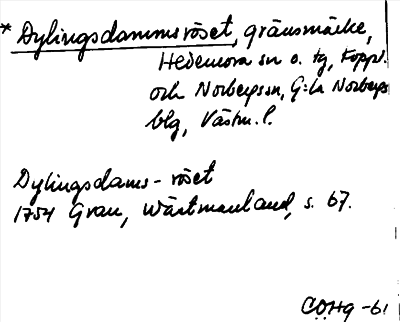 * Dylingsdammsröset, gränsmärke,
Hedemora sn o. tg, Koppl.
och Norbergs sn, G:la Norbergs
blg, Västm. l.
Dylingsdams-röset
1754 Grau, Wästmanland, s. 67.
COHg -61